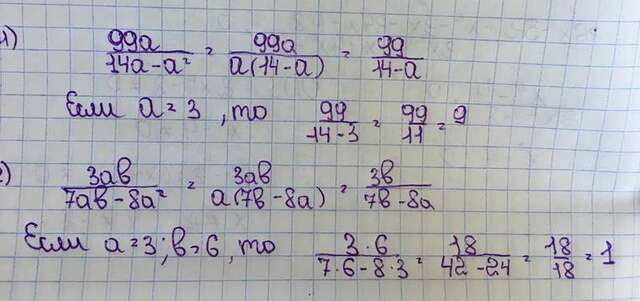 1) 99a/(14a-a²) = 99a/(a(14-a)) = 99/(14-a)
Если a=3, то 99/(14-3) = 99/11 = 9
2) 3ab/(7ab-8a²) = 3ab/(a(7b-8a)) = 3b/(7b-8a)
Если a=3; b=6, то 3·6/(7·6-8·3) = 18/(42-24) = 18/18 = 1